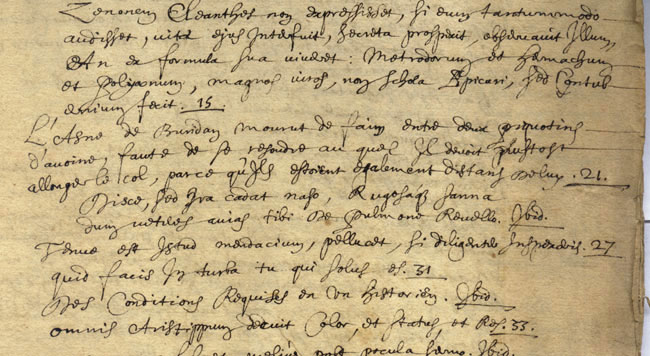 Zenonem Cleanthes non expressisset, si eum tantummodo
audisset, vitæ ejus Interfuit, secreta prospexit, observavit Illum,
An ex formula sua viveret: Metrodorum et Hermachum
et Polyænum, magnos viros, non schola Epicuri, sed Contub
ernium fecit. 15.
L'Asne de Buridan mourut de faim entre deux picotins
d'avoine, faute de se resoudre au quel Il devoit plustost
allonger le col, parce qu'Ils estoient egalement distans 21.
Disce, sed Ira cadat naso, Rugosaque sanna
Dum veteres avias tibi de pulmone Revello. Ibid.
Tenue est Istud mendacium, pellucet, si diligenter Inspexeris. 27
quid facis In turba tu qui solus es. 31
Des Conditions Requises en un Historien. Ibid.
omnis Aristippum decuit Color, et status, et Res. 33.
et melius post pocula Ibid.